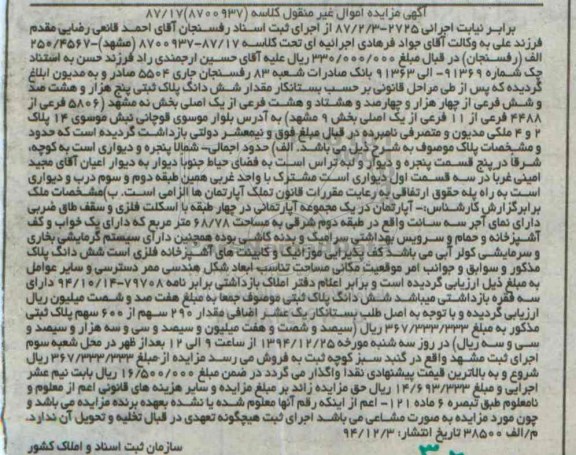 آگهی مزایده اموال غیر منقول کلاسه (۸۷۰۰۹۳۷) ۸۷/۱۷
برابر نیابت اجرائی ۲۷۲۵-۸۷/۲/۳ از اجرای ثبت اسناد رفسنجان آقای احمد قانعی رضایی مقدم
فرزند علی به وکالت آقای جواد فرهادی اجرائیه ای تحت کلاسه ۸۷/۱۷-۸۷۰۰۹۳۷ (مشهد)-۲۵۰/۴۵۶۷
الف (رفسنجان) در قبال مبلغ ۳۳۰/۰۰۰/۰۰۰ ریال علیه آقای حسین ارجمندی راد فرزند حسن به استناد
چک شماره ۹۱۳۶۹- الی ۹۱۳۶۳ بانک صادرات شعبه ۸۳ رفسنجان جاری ۵۵۰۴ صادر و به مدیون ابلاغ
گردیده که پس از طی مراحل قانونی بر حسب بستانکار مقدار شش دانگ پلاک ثبتی پنج هزار و هشت صد
و شش فرعی از چهار هزار و چهارصد و هشتاد و هشت فرعی از یک اصلی بخش نه مشهد (۵۸۰۶ فرعی از
۴۴۸۸ فرعی از ۱۱ فرعی از یک اصلی بخش ۹ مشهد) به آدرس بلوار موسوی قوچانی نبش موسوی ۱۴ پلاک
۲ و ۴ ملکی مدیون و متصرفی نامبرده در قبال مبلغ فوق و نیمعشر دولتی بازداشت گردیده است که حدود
و مشخصات پلاک موصوف به شرح ذیل می باشد. الف) حدود اجمالی- شمالا پنجره و دیواری است به کوچه،
شرقا در پنج قسمت پنجره و دیوار و لبه تراس است به فضای حیاط جنوبا دیوار به دیوار اعیان آقای مجید
امینی غربا در سه قسمت اول دیواری است مشترک با واحد غربی همین طبقه دوم و سوم درب و دیواری
است به راه پله حقوق ارتفاقی به رعایت مقررات قانون تملک آپارتمان ها الزامی است. ب)مشخصات ملک
برابر گزارش کارشناس:- آپارتمان در یک مجموعه آپارتمانی در چهار طبقه با اسکلت فلزی و سقف طاق ضربی
دارای نمای آجر سه سانت واقع در طبقه دوم شرقی به مساحت ۶۸/۷۸ متر مربع که دارای یک خواب و کف
آشپزخانه و حمام و سرویس بهداشتی سرامیک و بدنه کاشی بوده همچنین دارای سیستم گرمایشی بخاری
و سرمایشی کولر آبی می باشد کف پذیرایی موزائیک و کابینت های آشپزخانه فلزی است شش دانگ پلاک
مذکور و سوابق و جوانب امر موقعیت مکانی مساحت تناسب ابعاد شکل هندسی ممر دسترسی و سایر عوامل
به مبلغ ذیل ارزیابی گردیده است و برابر اعلام دفتر املاک بازداشتی برابر نامه ۷۹۷۰۸-۹۴/۱۰/۱۴ دارای
سه فقره بازداشتی میباشد شش دانگ پلاک ثبتی موصوف جمعا به مبلغ هفت صد و شصت میلیون ریال
ارزیابی گردیده و با توجه به اصل طلب بستانکار یک عشر اضافی مقدار ۲۹۰ سهم از ۶۰۰ سهم پلاک ثبتی
مذکور به مبلغ ۳۶۷/۳۳۳/۳۳۳ ریال (سیصد و شصت و هفت میلیون و سیصد و سی و سه هزار و سیصد و
سی و سه ریال) در روز سه شنبه مورخه ۱۳۹۴/۱۲/۲۵ از ساعت ۹ الی ۱۲ بعداز ظهر در محل شعبه سوم
اجرای ثبت مشهد واقع در گنبد سبز کوچه ثبت به فروش می رسد مزایده از مبلغ ۳۶۷/۳۳۳/۳۳۳ ریال
شروع و به بالاترین قیمت پیشنهادی نقدا واگذار می گردد در ضمن مبلغ ۱۶/۵۰۰/۰۰۰ ریال بابت نیم عشر
اجرایی و مبلغ ۱۴/۶۹۳/۳۳۳ ریال حق مزایده زائد بر مبلغ مزایده و سایر هزینه های قانونی اعم از معلوم و
نامعلوم طبق تبصره ۶ ماده ۱۲۱- اعم از اینکه رقم آنها معلوم شده یا نشده بعهده برنده مزایده می باشد و
چون مورد مزایده به صورت مشاعی می باشد اجرای ثبت هیچگونه تعهدی در قبال تخلیه و تحویل آن ندارد.
م/الف ۳۸۵۰۰ تاریخ انتشار: ۹۴/۱۲/۳
سازمان ثبت اسناد و املاک کشور